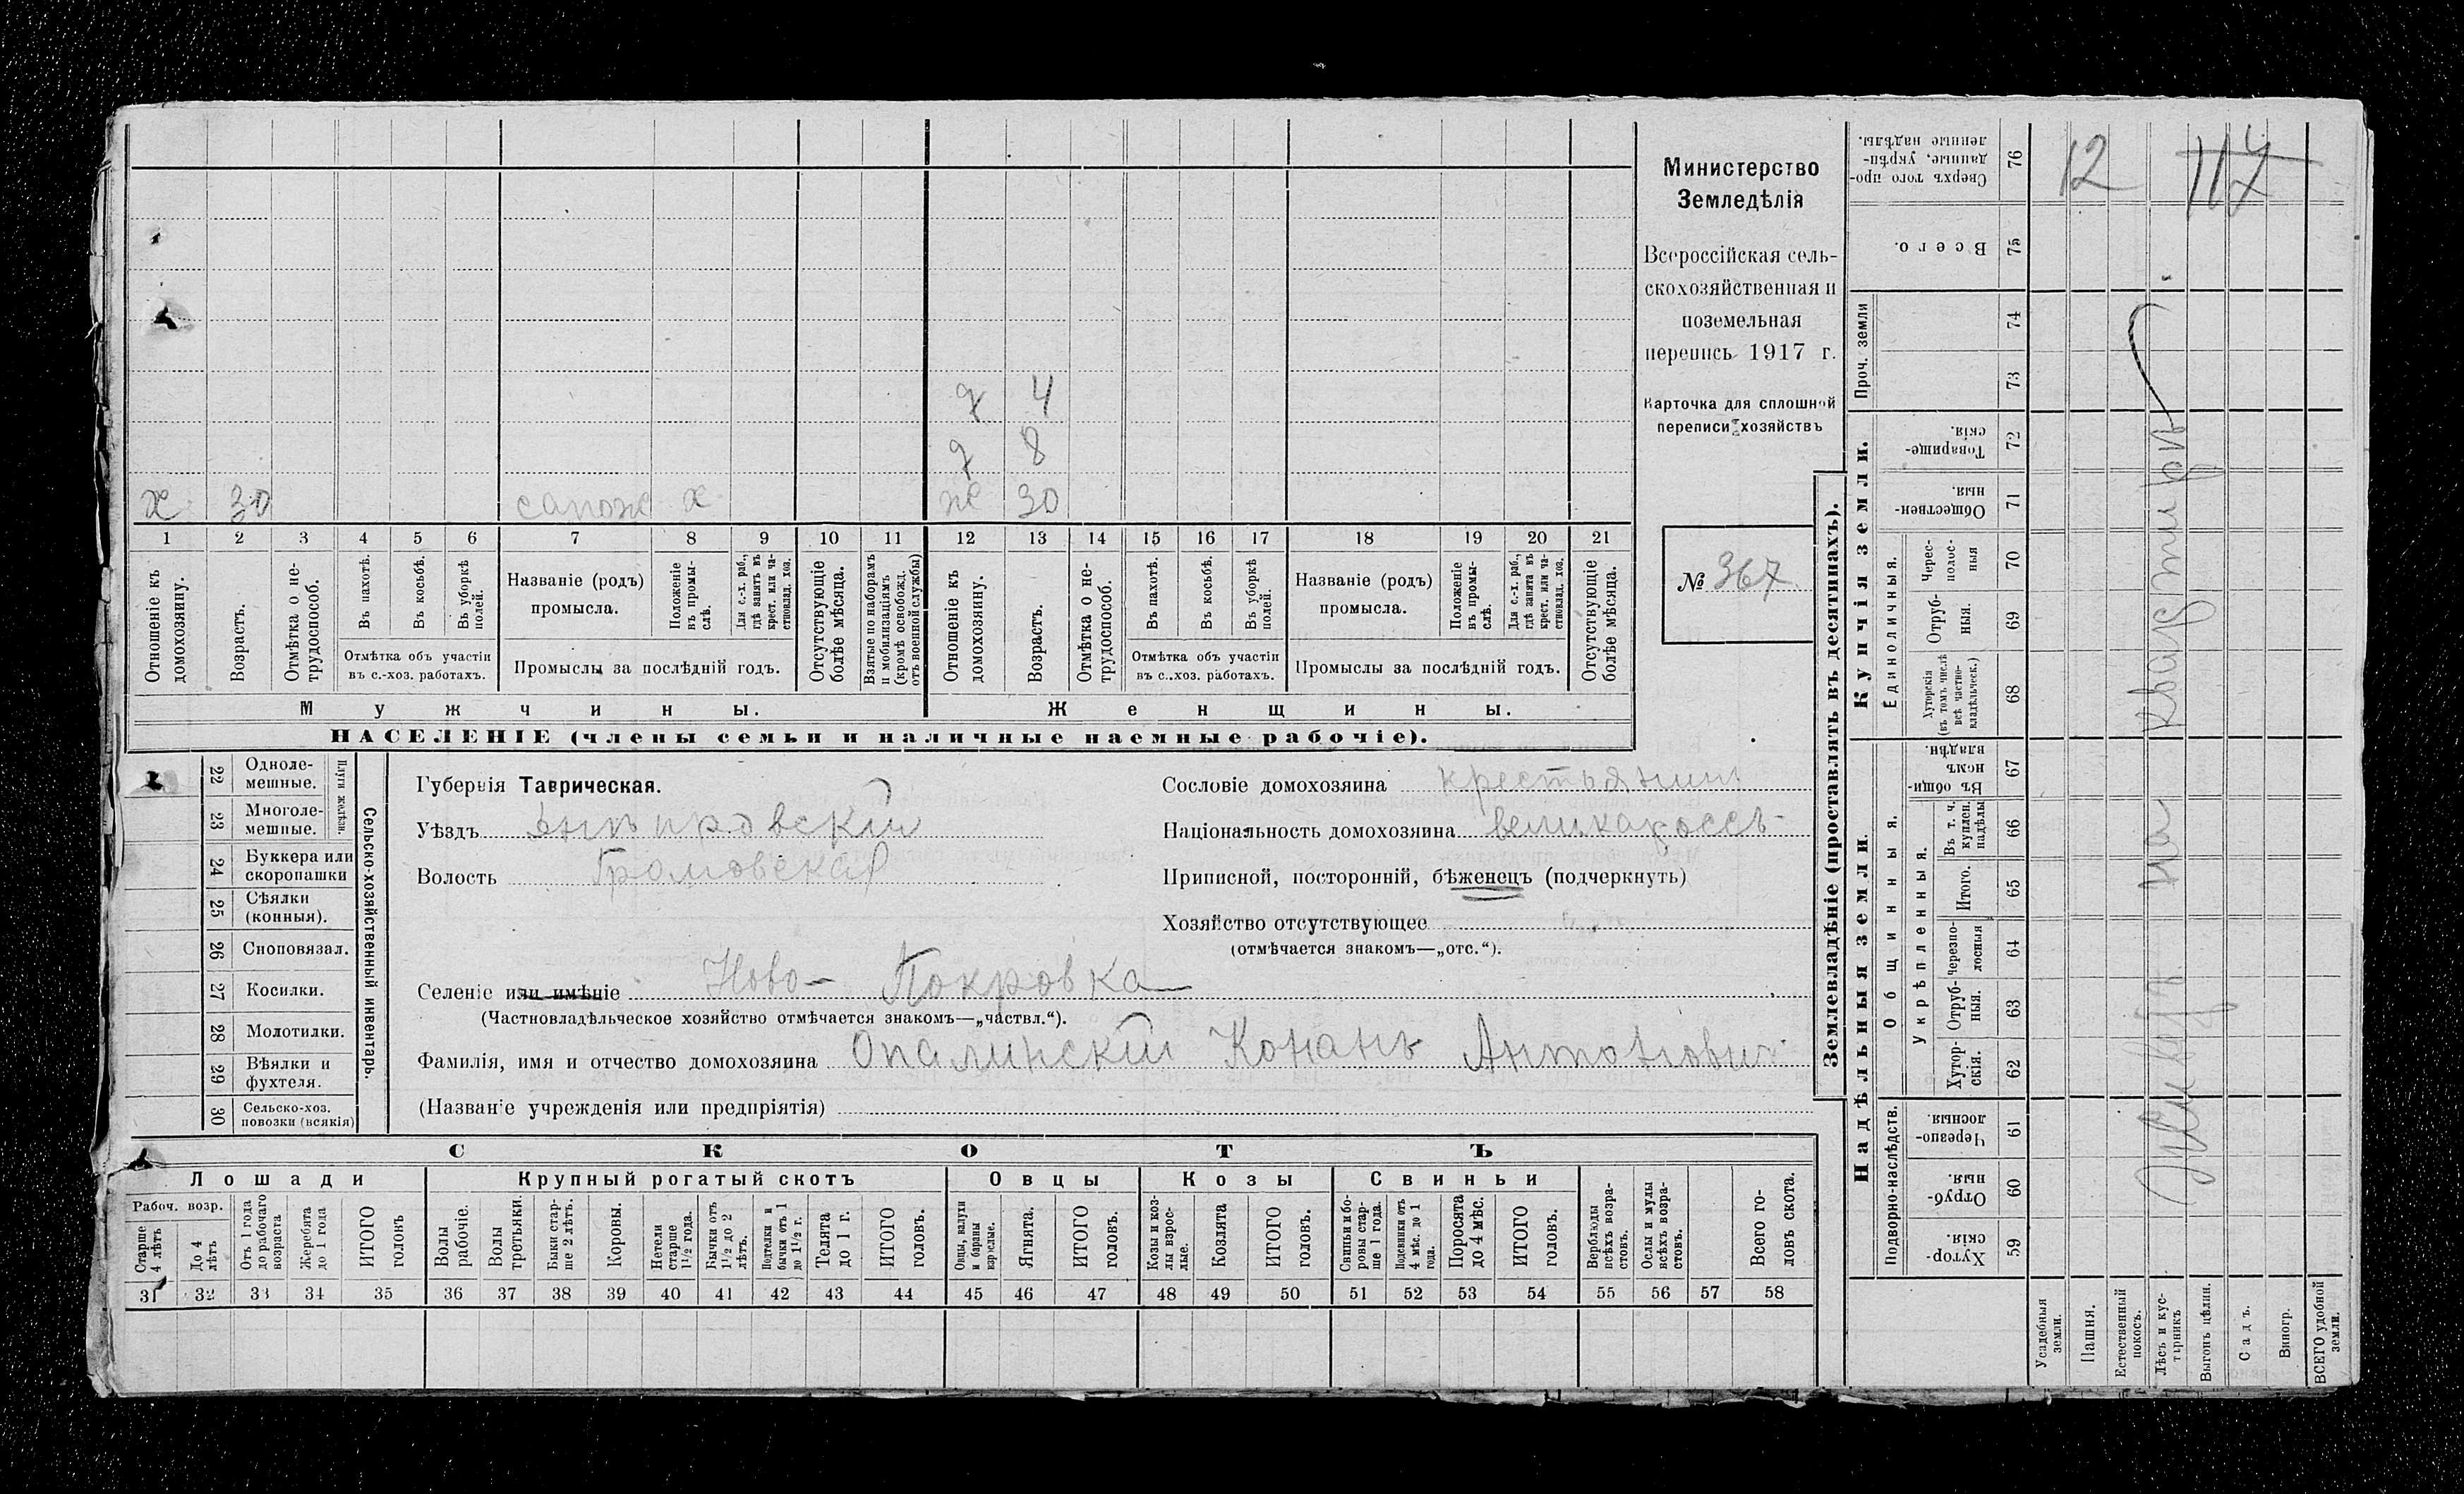 Министерство
Земледѣлія
Всероссійская сель-
скохозяйственная и
поземельная
перепись 1917 г.
Карточка для сплошной
переписи хозяйствъ
№ 367
д 4
д 8
х 30 сапож х ж 30
1 2 3 4 5 6 7 8 9 10 11 12 13 14 15 16 17 18 19 20 21
Отношеніе къ домохозяину.
Возрастъ.
Отмѣтка о не-трудоспособ.
Въ пахотѣ.
Въ косьбѣ.
Въ уборкѣ полей.
Отмѣтка объ участіи
въ с.-хоз. работахъ.
Названіе (родъ)
промысла.
Положеніе въ промы-слѣ.
Для с.-х. раб., гдѣ занятъ въ крест. или ча-стновлад. хоз.
Промыслы за послѣдній годъ.
Отсутствующіе болѣе мѣсяца.
Взятые по наборамъ и мобилизаціямъ (кромѣ освобожд. отъ военной службы)
Отношеніе къ домохозяину.
Возрастъ.
Отмѣтка о не-трудоспособ.
Въ пахотѣ.
Въ косьбѣ.
Въ уборкѣ полей.
Отмѣтка объ участіи
въ с.-хоз. работахъ.
Названіе (родъ)
промысла.
Положеніе въ промы-слѣ.
Для с.-х. раб., гдѣ занята въ крест. или ча-стновлад. хоз.
Промыслы за послѣдній годъ.
Отсутствующіе болѣе мѣсяца.
Мужчины. Женщины.
НАСЕЛЕНІЕ (члены семьи и наличные наемные рабочіе).
22 Одноле-мешные.
23 Многоле-мешные.
Плуги желѣзн.
24 Буккера или скоропашки
25 Сѣялки (конныя).
26 Сноповязал.
27 Косилки.
28 Молотилки.
29 Вѣялки и фухтеля.
30 Сельско-хоз. повозки (всякія)
Сельско-хозяйственный инвентарь.
Губернія Таврическая.
Уѣздъ Днѣпровскій
Волость Громовская
Сословіе домохозяина крестьянинъ
Національность домохозяина великороссъ
Приписной, посторонній, бѣженецъ (подчеркнуть)
Хозяйство отсутствующее
(отмѣчается знакомъ—„отс.“).
Селеніе или имѣніе Ново-Покровка
(Частновладѣльческое хозяйство отмѣчается знакомъ—„частвл.“).
Фамилія, имя и отчество домохозяина Опалинскій Конанъ Антоновичъ
(Названіе учрежденія или предпріятія)
СКОТЪ
Лошади Крупный рогатый скотъ Овцы Козы Свиньи
Рабоч. возр.
Старше 4 лѣтъ
До 4 лѣтъ
Отъ 1 года до рабочаго возраста
Жеребята до 1 года
ИТОГО головъ
Волы рабочіе.
Волы третьяки.
Быки стар-ше 2 лѣтъ.
Коровы.
Нетели старше 1½ года.
Бычки отъ 1½ до 2 лѣтъ.
Подтелки и бычки отъ 1 до 1½ г.
Телята до 1 г.
ИТОГО головъ.
Овцы, валухи и бараны взрослые.
Ягнята.
ИТОГО головъ.
Козы и коз-лы взрос-лые.
Козлята
ИТОГО головъ.
Свиньи и бо-ровы стар-ше 1 года.
Подсвинки отъ 4 мѣс. до 1 года.
Поросята до 4 мѣс.
ИТОГО головъ.
Верблюды всѣхъ возра-стовъ.
Ослы и мулы всѣхъ возра-стовъ.
Всего го-ловъ скота.
31 32 33 34 35 36 37 38 39 40 41 42 43 44 45 46 47 48 49 50 51 52 53 54 55 56 57 58
Землевладѣніе (проставлять въ десятинахъ).
Надѣльныя земли. Купчія земли.
Подворно-наслѣдств.
Общинныя.
Укрѣпленныя.
Единоличныя.
Проч. земли
Хутор-скія. 59
Отруб-ныя. 60
Черезпо-лосныя. 61
Хутор-скія. 62
Отруб-ныя. 63
Черезпо-лосныя 64
Итого. 65
Въ т. ч. куплен. надѣлы 66
Въ общи-номъ владѣн. 67
Хуторскія (въ томъ числѣ всѣ частно-владѣльческ.) 68
Отруб-ныя. 69
Черес-полос-ныя 70
Обществен-ныя. 71
Товарище-скія. 72
73
74
Всего. 75
Сверхъ того про-данные, укрѣп-ленные надѣлы. 76
Усадебныя земли.
Пашня.
Естественный покосъ.
Лѣсъ и кус-тарникъ
Выгонъ цѣлин.
Садъ.
Виногр.
ВСЕГО удобной земли.
12
117
на квартирѣ